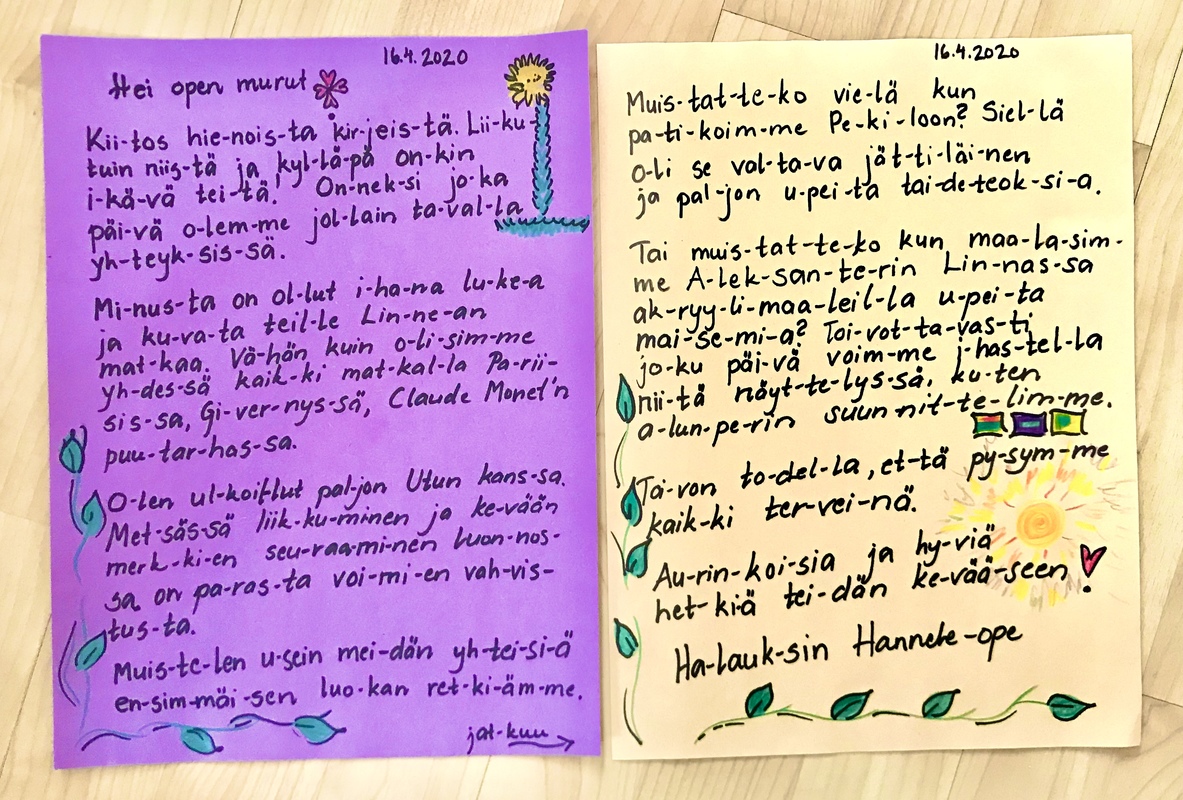 16.4.2020
Hei open murut
Kii-tos hie-nois-ta kir-jeis-tä. Lii-ku-
tuin niis-tä ja kyl-lä-pä on-kin
i-kä-vä tei-tä! On-nek-si jo-ka
päi-vä o-lem-me jol-lain ta-val-la
yh-teyk-sis-sä.
Mi-nus-ta on ol-lut i-ha-na lu-ke-a
ja ku-va-ta teil-le Lin-ne-an
mat-kaa. Vä-hän kuin o-li-sim-me
yh-des-sä kaik-ki mat-kal-la Pa-rii-
sis-sa, Gi-ver-nys-sä, Claude Monet'n
puu-tar-has-sa.
O-len ul-koillut pal-jon Utun kans-sa.
Met-säs-sä liik-ku-minen ja ke-vään
merk-ki-en seu-raa-mi-nen luon-nos-
sa on pa-ras-ta voi-mi-en vah-vis-
tus-ta.
Muis-te-len u-sein mei-dän yh-tei-si-ä
en-sim-mäi-sen luo-kan ret-ki-äm-me.
jat-kuu
16.4.2020
Muis-tat-te-ko vie-lä kun
pa-ti-koim-me Pe-ki-loon? Siel-lä
o-li se val-ta-va jät-ti-läi-nen
ja pal-jon u-pei-ta tai-de-teok-si-a.
Tai muis-tat-te-ko kun maa-la-sim-
me A-lek-san-te-rin Lin-nas-sa
ak-ryy-li-maa-leil-la u-pei-ta
mai-se-mi-a? Toi-vot-ta-vas-ti
jo-ku päi-vä voim-me i-has-tel-la
nii-tä näyt-te-lys-sä, ku-ten
a-lun-pe-rin suun-nit-te-lim-me.
Toi-von to-del-la, et-tä py-sym-me
kaik-ki ter-vei-nä.
Au-rin-koi-sia ja hy-viä
het-kiä tei-dän ke-vää-seen!
Ha-lauk-sin Hannele-ope